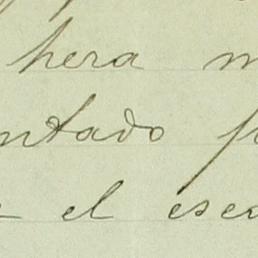 hera m
ntado p
el esca